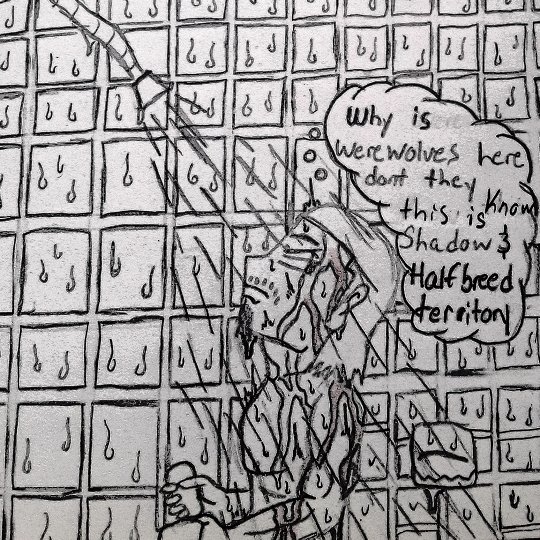 Why is
werewolves here
dont they
Know
this is
Shadow &
Halfbreed
territory